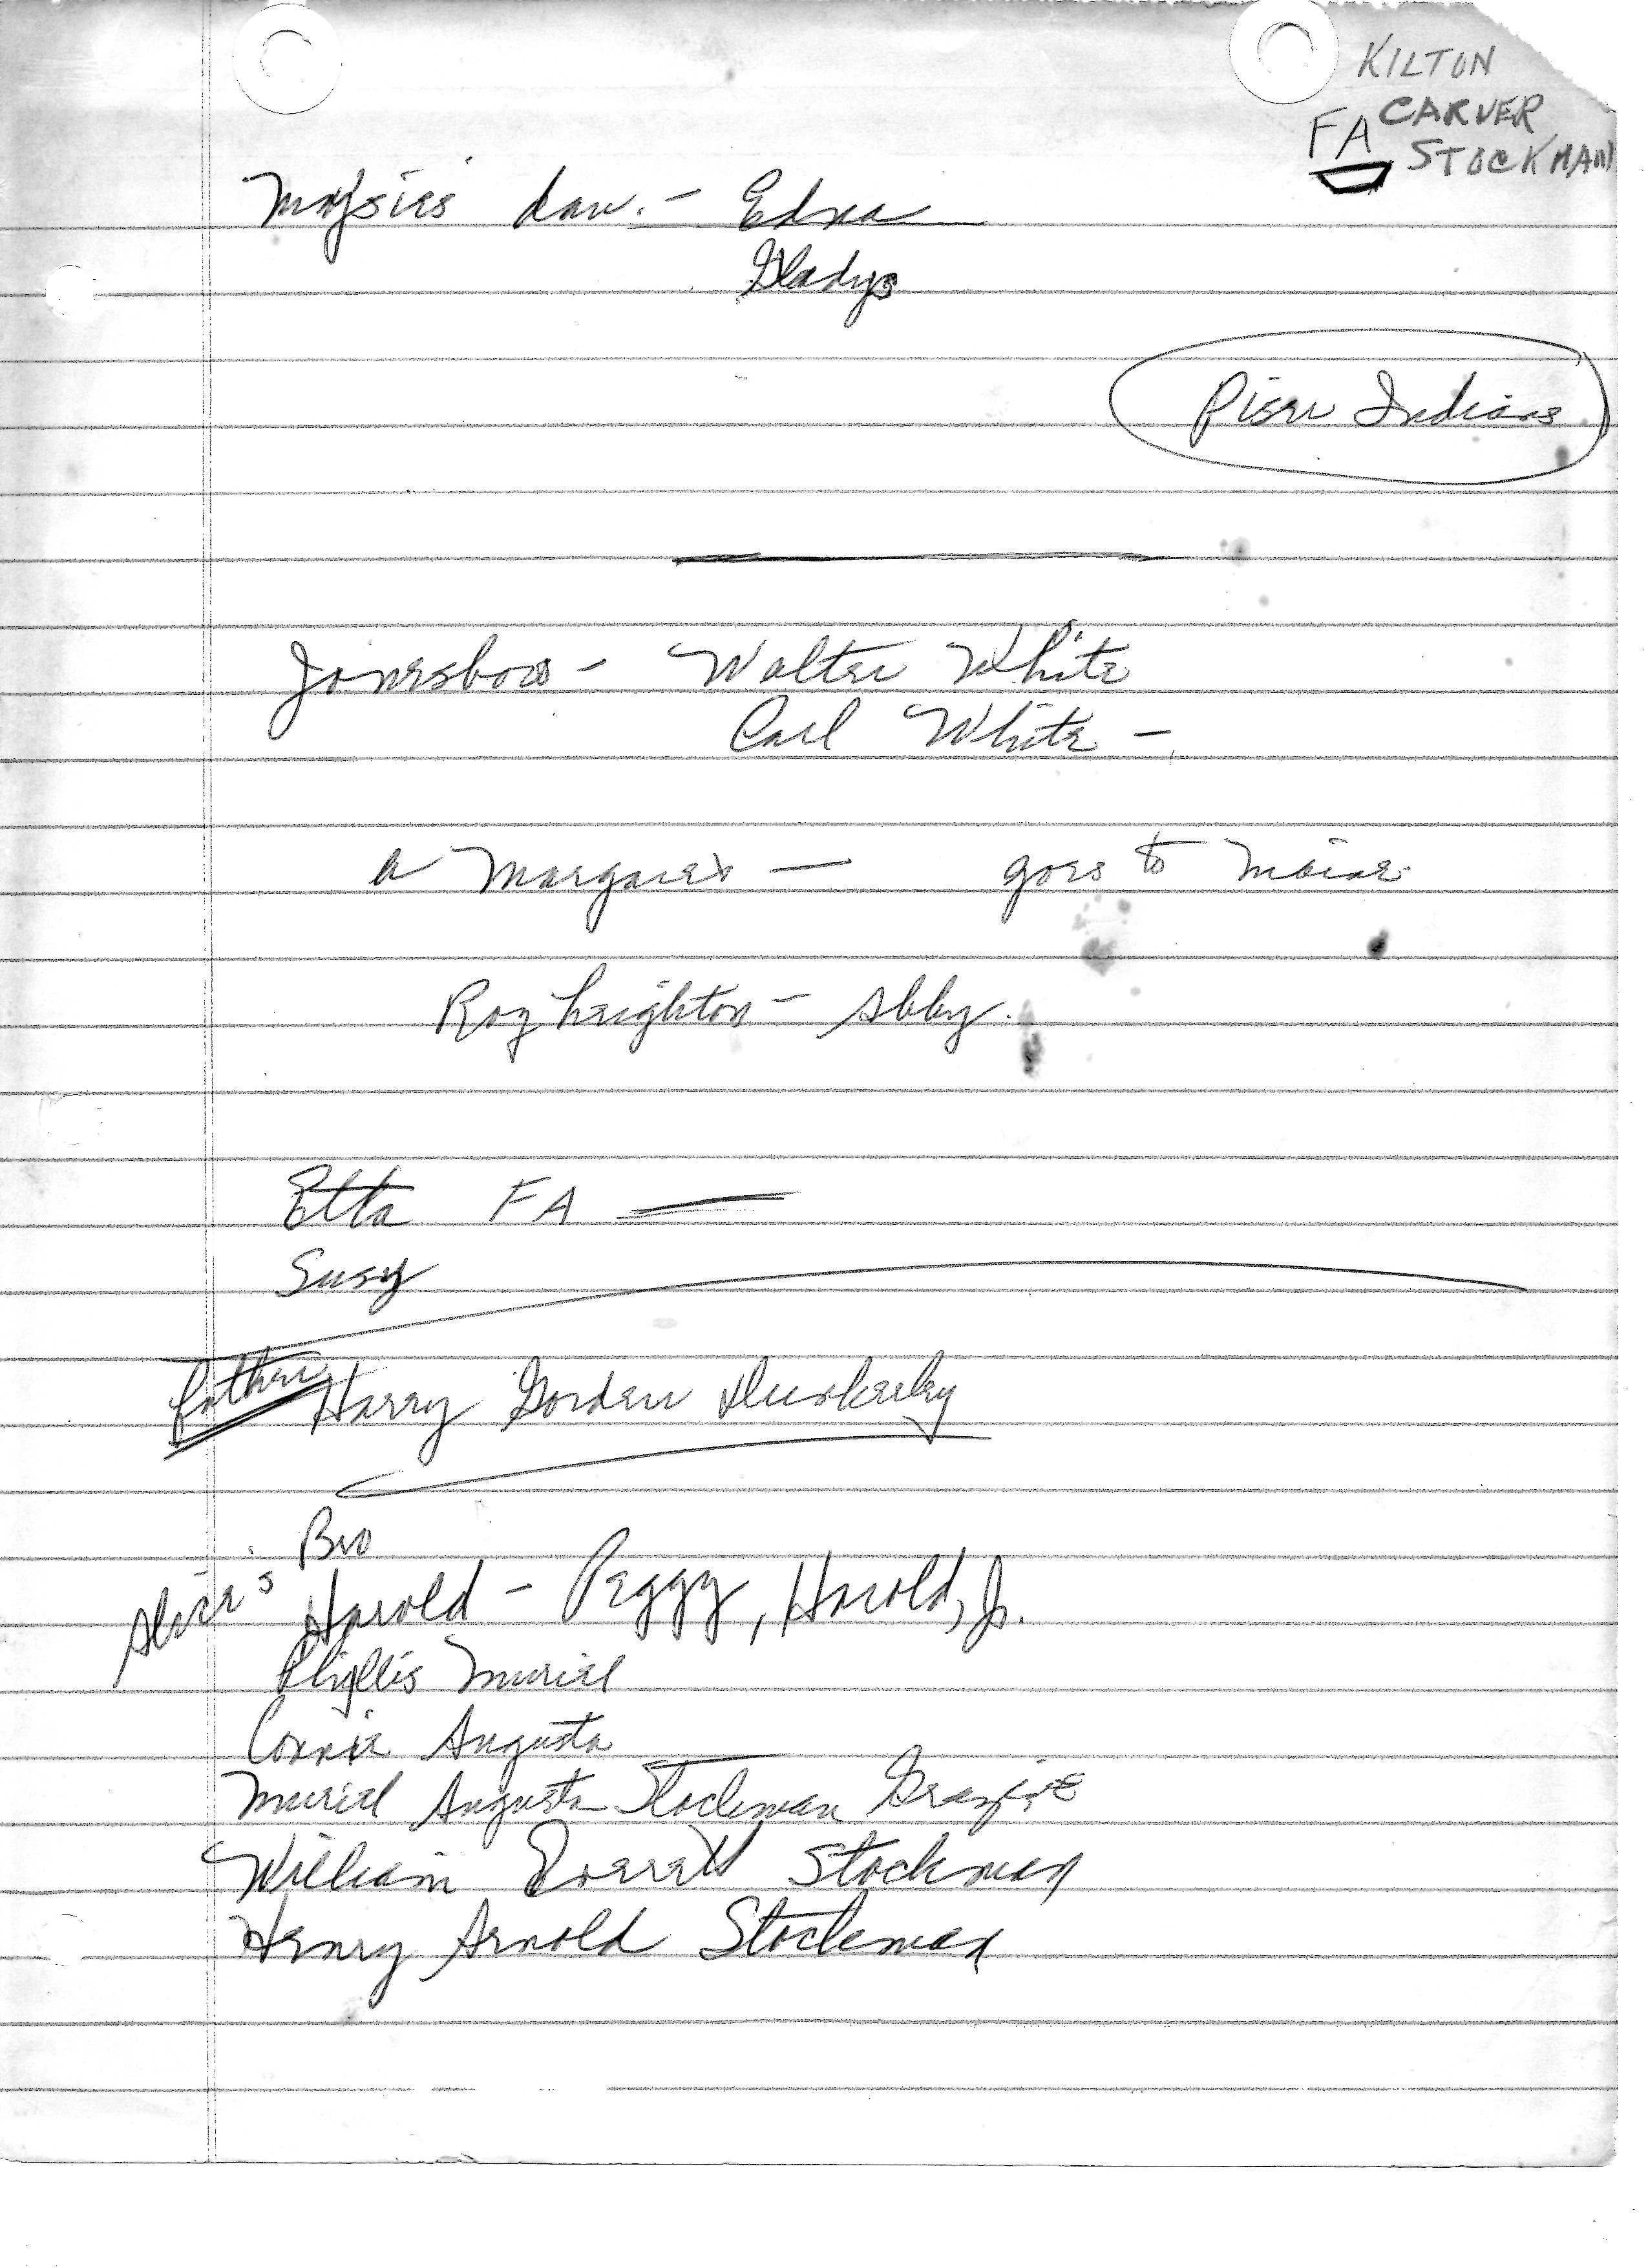 KILTON
CARVER
FA STOCKMAN
Maysies dau. - Edna
Gladys
Indians
Jonesboro - Walter White
Carl White -
a Margaret - goes to Maine.
Roy Leighton - Abby.
Etta FA
Susy
father Harry Gorden Dunkerley
Bro
Alice's Harold - Peggy, Harold, Jr.
Phyllis Muriel
Connie Augusta
Muriel Augusta Stockman
William Everett Stockman
Henry Arnold Stockman